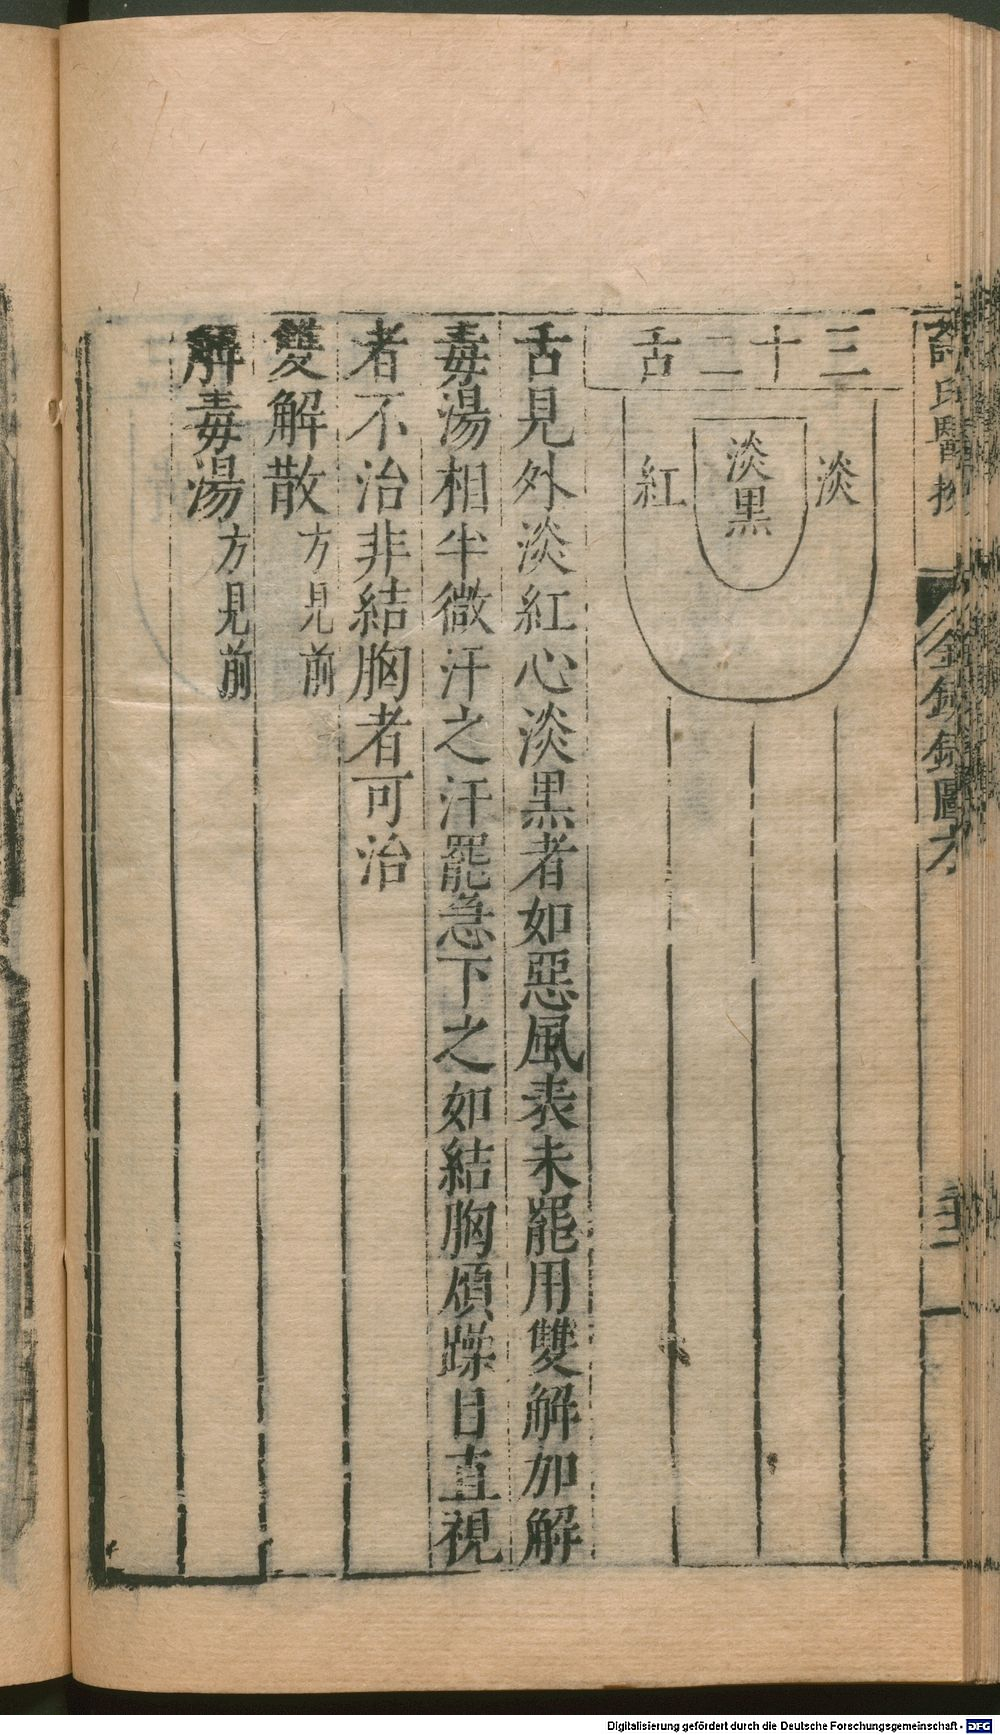 三十二舌
淡
淡黒
紅
舌見外淡紅心淡黒者如惡風表未罷用雙解加解
毒湯相半微汗之汗罷急下之如結胸煩躁目直視
者不治非結胸者可治
雙解散方見前
解毒湯方見前
薛氏醫按
金鏡錄圖方
Digitalisierung gefördert durch die Deutsche Forschungsgemeinschaft - DFG